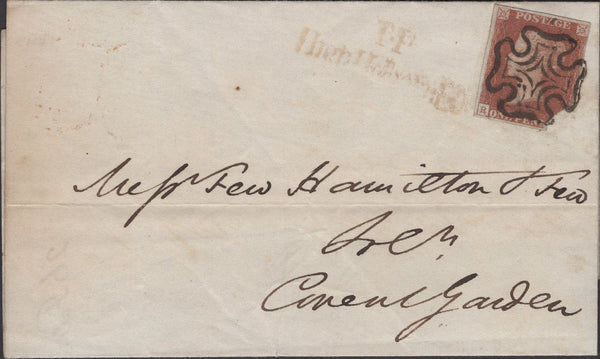 POSTAGE
T.P
High Holborn
R ONE PEN
Messrs Few Hamilton & Few
Covent Garden